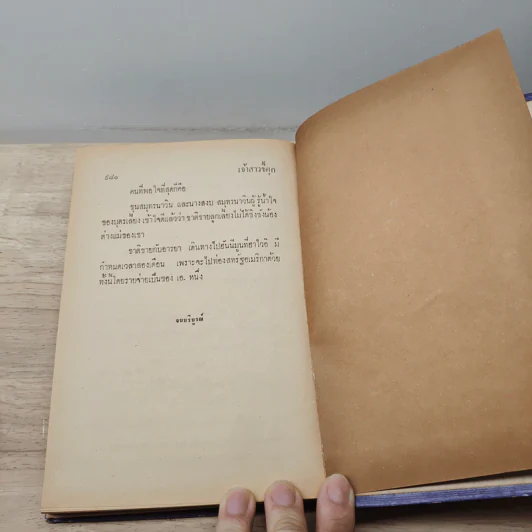 เจ้าสาวขี้คุก
คนที่พอใจที่สุดก็คือ
ขุนสมุทรนาวิน และนางสงบ สมุทรนาวินรู้น้ำใจ
ของบุตรเลี้ยง เข้าใจดีแล้วว่า ชาติชายลูกเลี้ยงไม่ได้ชิงชังน้อง
ต่างแม่ของเขา
ชาติชายกับอารยา เดินทางไปฮันนีมูนที่ฮาไวอิ มี
กำหนดเวลาสองเดือน เพราะจะไปท่องสหรัฐอเมริกาด้วย
ทั้งนี้โดยรายจ่ายเป็นของ เอ. หนึ่ง
จบบริบูรณ์